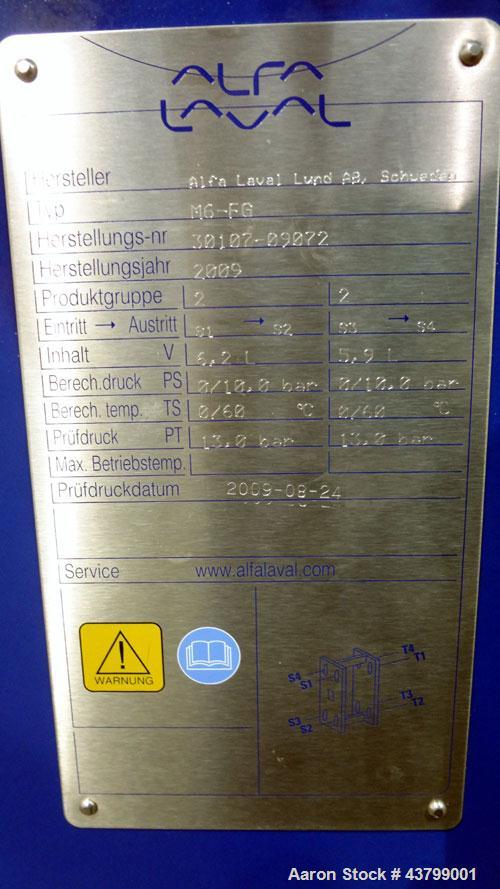 ALFA
LAVAL
Hersteller Alfa Laval Lund AB, Schweden
Typ M6-FG
Herstellungs-nr 30107-09072
Herstellungsjahr 2009
Produktgruppe 2 2
Eintritt → Austritt S1 → S2 S3 → S4
Inhalt V 6,2 L 5,9 L
Berech.druck PS 0/10,0 bar 0/10,0 bar
Berech. temp. TS 0/60 °C 0/60 °C
Prüfdruck PT 13,0 bar 13,0 bar
Max. Betriebstemp.
Prüfdruckdatum 2009-08-24
Service www.alfalaval.com
WARNUNG
T4
T1
S4
S1
T3
T2
S3
S2
Aaron Stock # 43799001